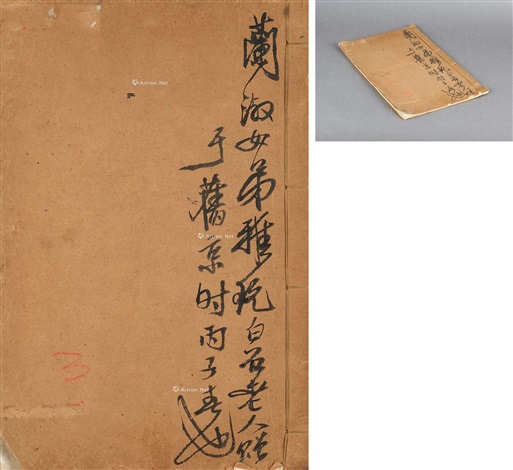 蘭淑女弟雅玩白石老人贈
于舊京时丙子春也
3
Artron.Net
Artron.Net
Artron.Net